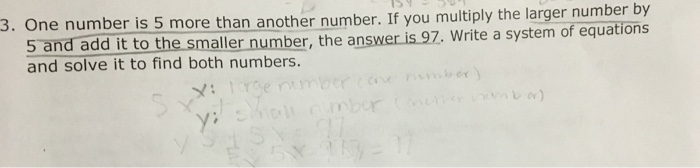 3. One number is 5 more than another number. If you multiply the larger number by
5 and add it to the smaller number, the answer is 97. Write a system of equations
and solve it to find both numbers.
x: large number (one number)
y: small number (another number)